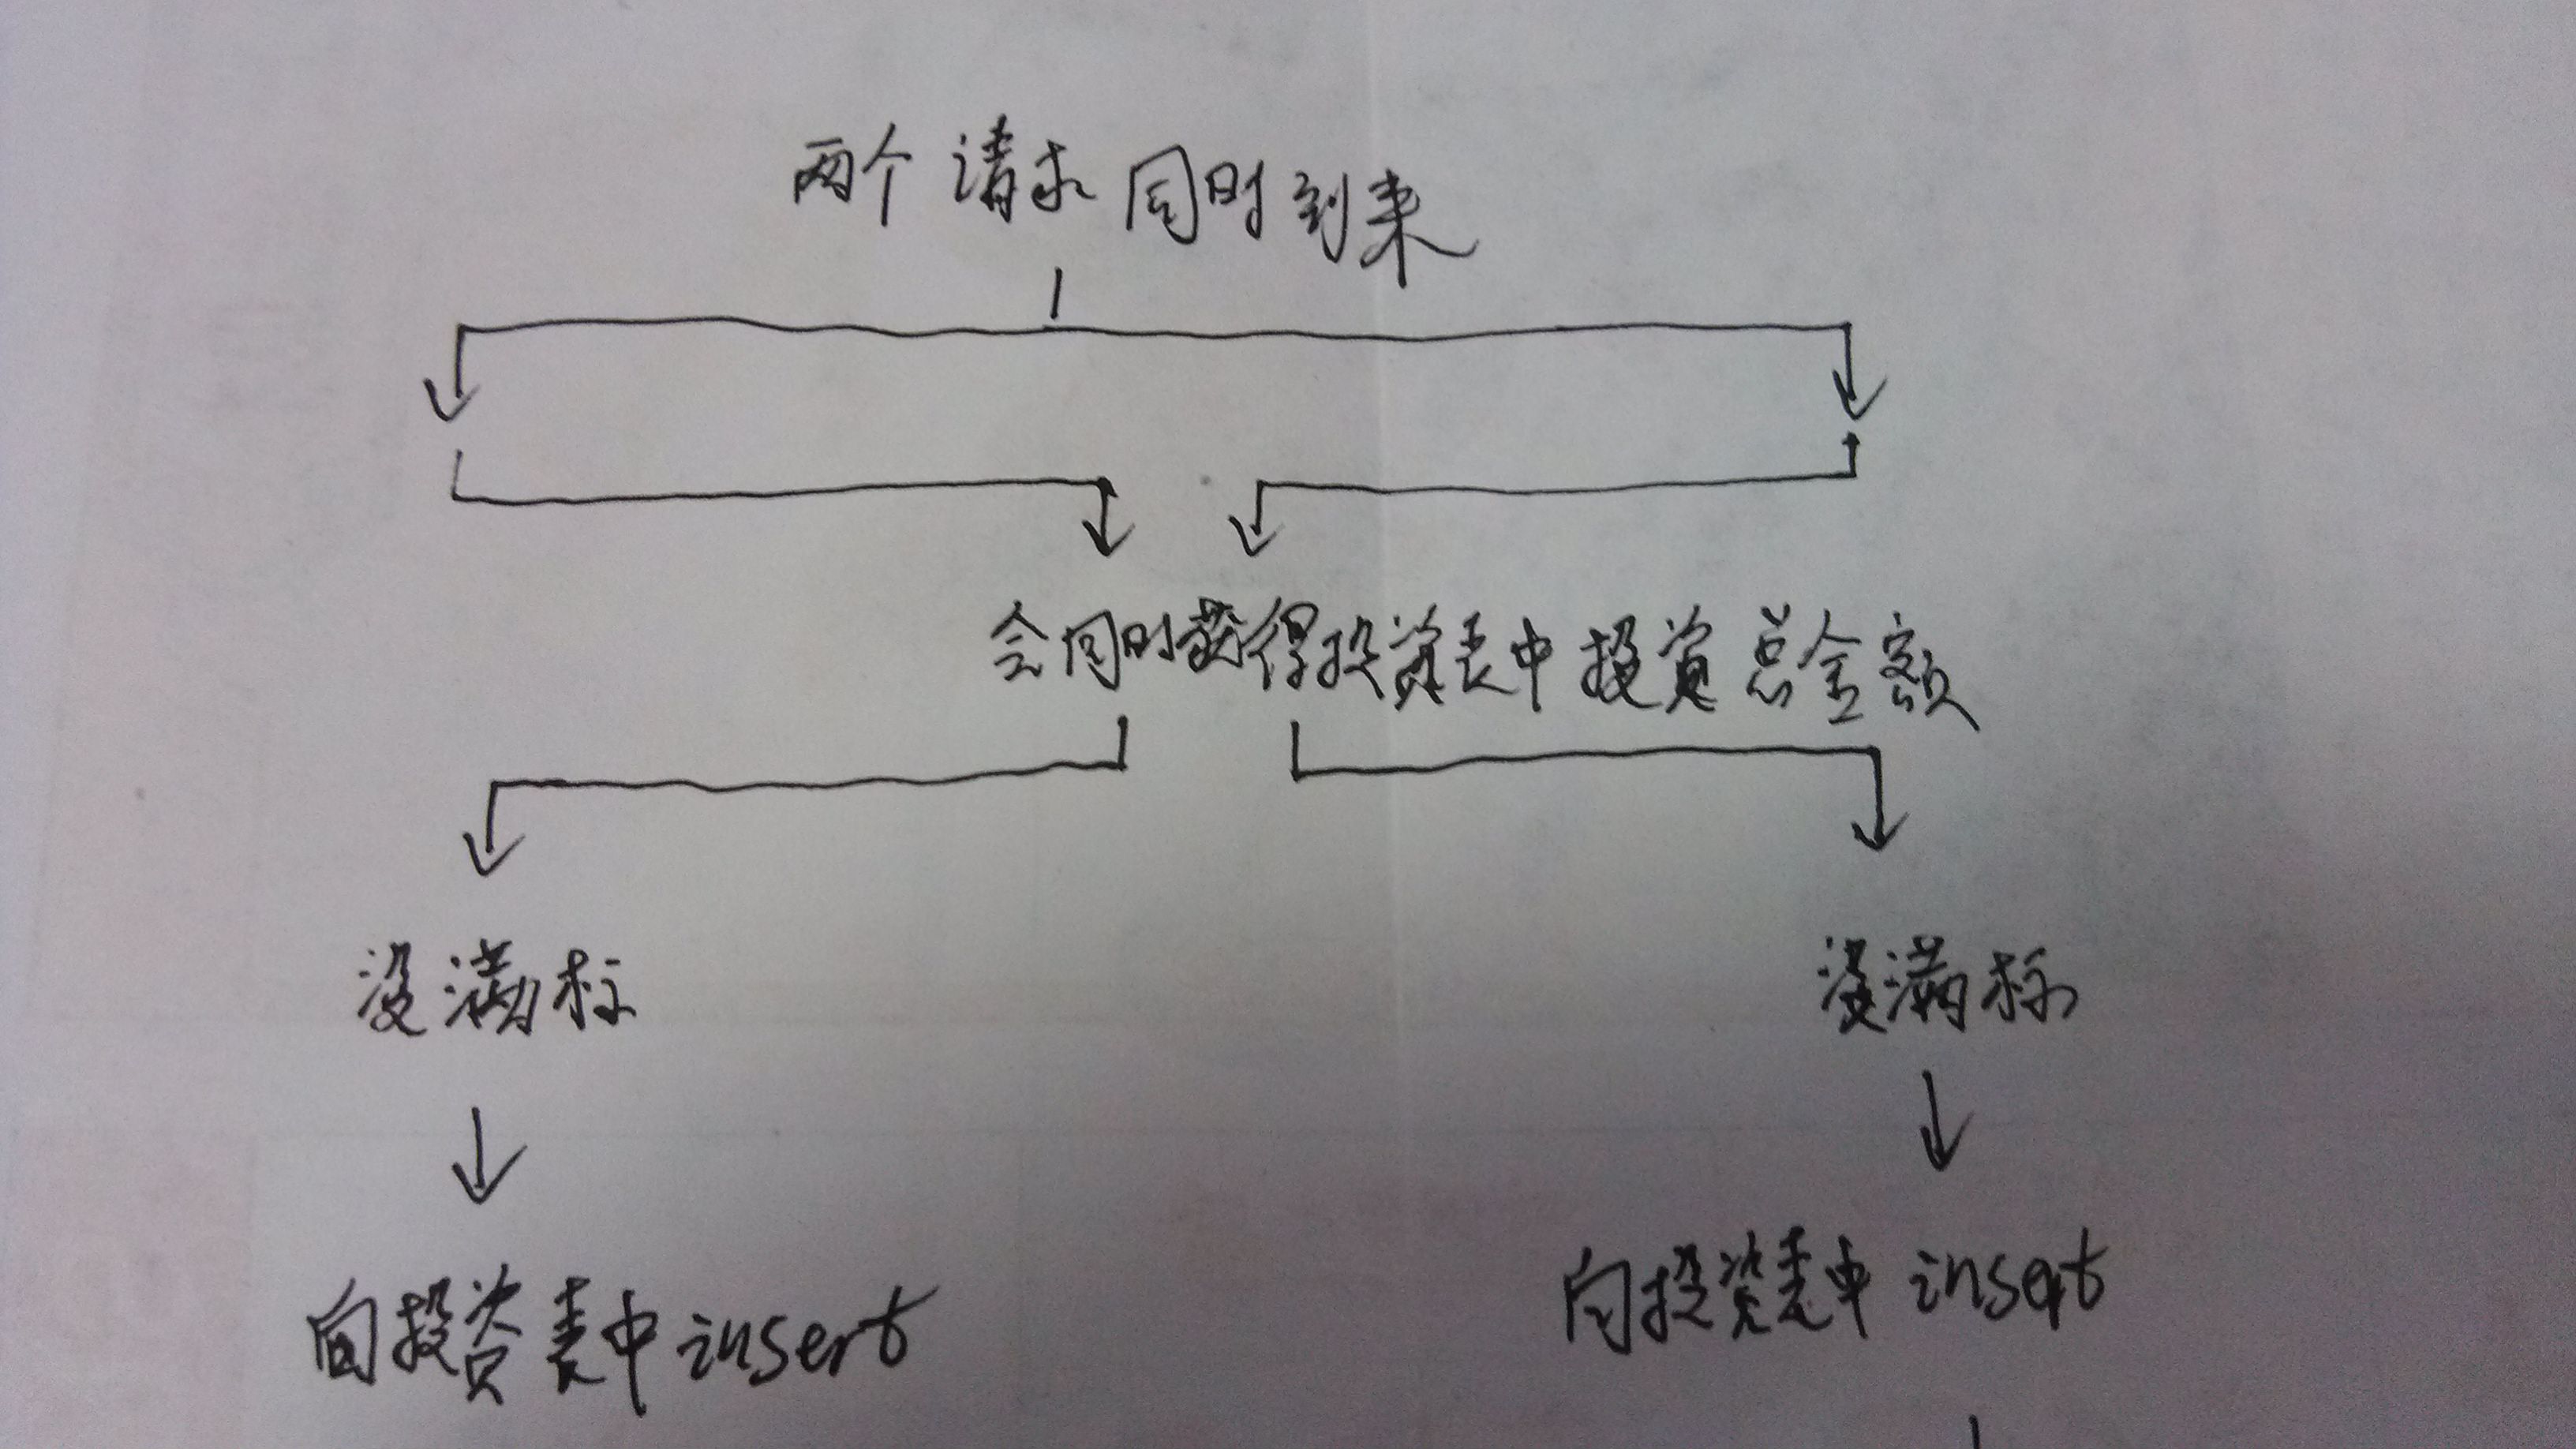 两个请求同时到来
会同时获得投资表中投资总金额
没满标
没满标
向投资表中insert
向投资表中insert